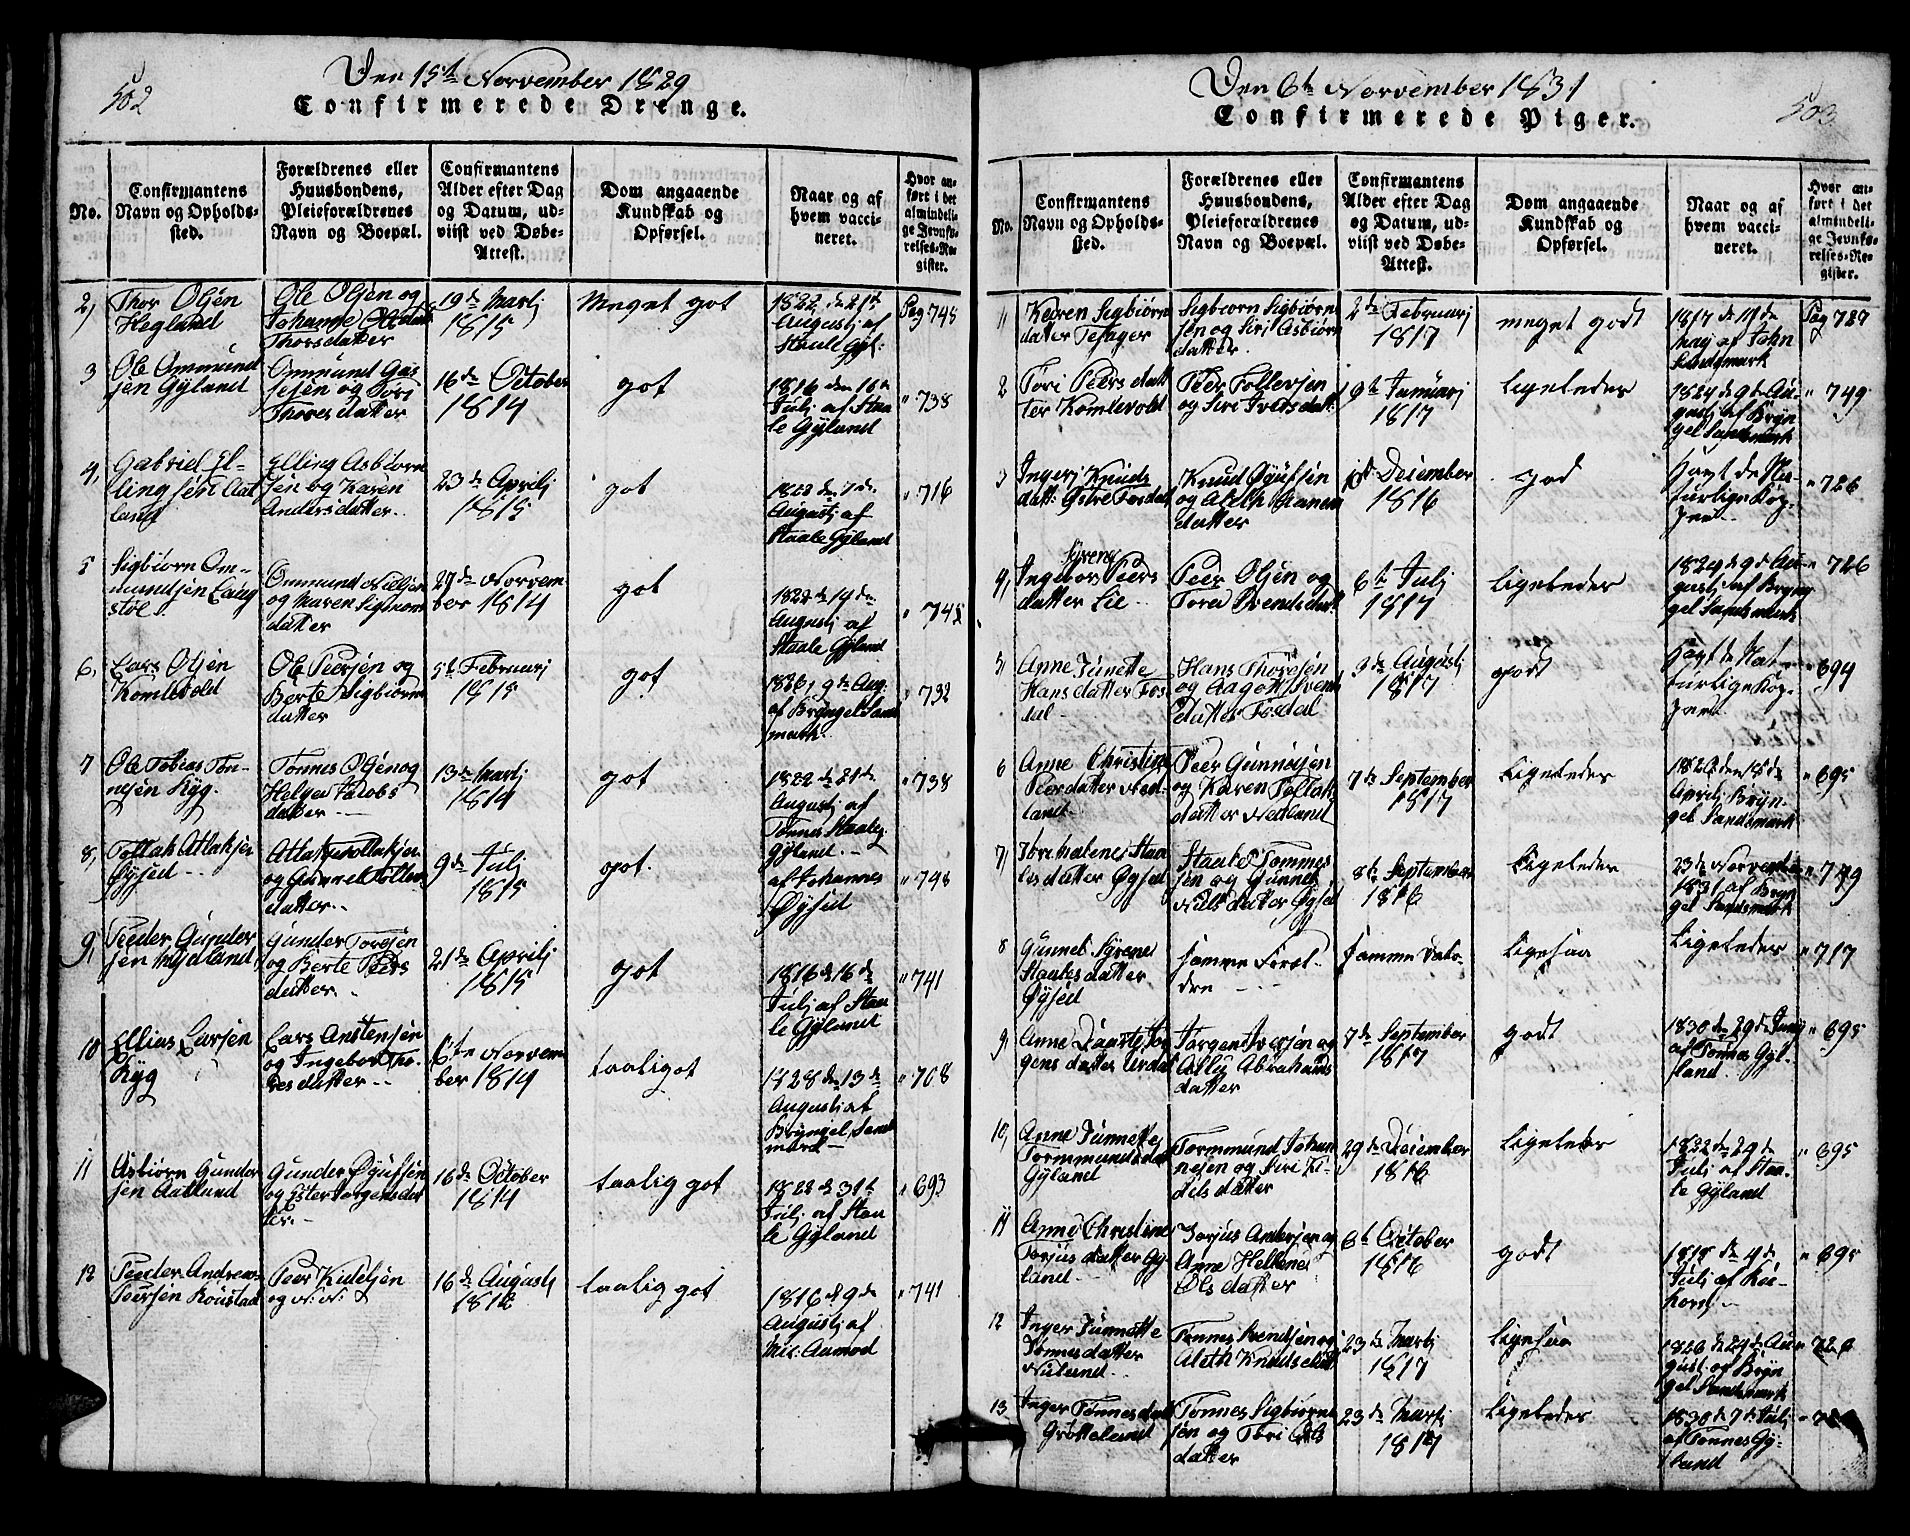 502
Den 15de November 1829
Confirmerede Drenge.
No.
Confirmantens
Navn og Opholds-
sted.
Forældrenes eller
Huusbondens,
Pleieforældrenes
Navn og Boepæl.
Confirmantens
Alder efter Dag
og Datum, ud-
viist ved Døbe-
Attest.
Dom angaaende
Kundskab og
Opførsel.
Naar og af
hvem vacci-
neret.
Hvor an-
ført i det
almindeli-
ge Jevnfø-
relses-Re-
gister.
2, Thor Olsen
Hegland
Ole Olsen og
Johanne
Thorsdatter
19de Martj
1815
Meget got
1822 den 21de
Augustj af
Staale Gyl:
Pag 745
3 Ole Ommund
sen Gyland
Ommund Gas
sesen og Tori
Thores datter
16de October
1814
got
1816 den 16de
Julj af Staa
le Gyland
" 738
4, Gabriel El-
lingsen Aat
land
Elling Asbiørn
sen og Karen
Andersdatter
23de Aprilj
1815
got
1822 den 7de
Augustj af
Staale Gyland
" 716
5 Sigbiørn Om-
mundsen Laug
støl
Ommund Nilsen
og Maren Sigmun
datter
27de Novem
ber 1814
got
1822 de 14de
Augustj af
Staale Gyland
" 748
6, Lars Olsen
Komlevold
Ole Peersen og
Berte Sigbiørns
datter
5te Februarj
1815
got
1826, 9de Aug.
af Brÿngel Sand
smark
" 732
7 Ole Tobias Tøn-
nesen Kyg.
Tønnes Olsen og
Helge Jacobs
datter
13de Martj
1814
got
1822 de 21de
Augustj af
Tønnes Staaleg
Gyland.
" 738
8, Tollak Atlaksen
Øysæd
Atlak Tollaksen
og Gunnel Tollev
datter
9de Julj
1815
got.
af Johannes
Øÿsæd
" 748
9, Peeder Gunder
sen Mydland
Gunder Toresen
og Berte Peers
datter
21de Aprilj
1815
got
1816 de 16de
Julj af Staa
le Gyland
" 741
10 Ellias Larsen
Kyg
Lars Anstensen
og Ingebor Tho
resdatter
6te Novem
ber 1814
taaligot
1828 de 13de
Augustj af
Brÿngel Sand
mark
" 708
11 Asbiørn Gunder
sen Aatland
Gunder Øyufsen
og Ester Jørgensdat
ter.
16de October
1814
taalig got
1822 de 31te
Julj af Staa
le Gÿland
" 693
12 Peeder Andreas
Peersen Røustad
Peer Kidelsen
og N: N:
16de Augustj
1812
taalig got
1816 d 9de
Augustj af
Nil: Aamod
" 741
503
Den 6te November 1831
Confirmerede Piger.
No.
Confirmantens
Navn og Opholds-
sted.
Forældrenes eller
Huusbondens,
Pleieforældrenes
Navn og Boepæl.
Confirmantens
Alder efter Dag
og Datum, ud-
viist ved Døbe-
Attest.
Dom angaaende
Kundskab og
Opførsel.
Naar og af
hvem vacci-
neret.
Hvor an-
ført i det
almindeli-
ge Jevnfø-
relses-Re-
gister.
1 Karen Sigbiørn
datter Tesager
Sigbiørn Sigbiørn
sen og Siri Asbiørn
datter
2de Februarj
1817
meget godt
1817 de 11te
Maj af John
Sandsmark
Pag 727
2 Tori Peers dat
ter Komlevold
Peer Tollevsen
og Siri Ivers dat:
9de Januarj
1817
ligeleder
1824 de 9de Au-
gustj af Brÿn
gel Sandsmark
" 749
3 Ingerj Knuds
datt: Østre Fosdal
Knud Øyufsen
og Aleth Aanen
datter
1ste December
1816
god
Havt de Na-
turlige Kop-
per
" 726
4, Ingebor Syreng Peers
datter Lie
Peer Olsen og
Tora Svendsdat:
6te Julj
1817
ligeleder
1824 de 9de Au-
gustj af Brÿn
gel Sandsmark
" 726
5, Anne Junette
Hans datter Fos
dal
Hans Thoresen
og Aagot Svend
datter Fosdal
3de Augustj
1817
godt
Havt de Nat
turlige Kop-
per
" 694
6 Anne Christine
Peersdatter Ned-
land
Peer Gunnuvsen
og Karen Tollak
datter Nedland
7de September
1817
Ligeleder
1824 den 18de
Aprilj Brÿn-
gel Sandsmark
" 695
7, Tori Malene Staa
les datter Øysæd
Staale Tønnes
sen og Gunnel
Nils datter Øysæd
8de September
1816
Ligeleder
23de November
1831 af Brÿn
gel Sandsmark
" 749
8 Gunnel Syrene
Staales datter
Øysæd
samme Foræl-
dre
samme Dato
Ligesaa
Ligeleder
" 717
9 Anne Daarte Jør
gens datter Urdal
Jørgen Iversen og
Aslu Abrahams
datter
7de September
1817
godt
1830 de 29de Junj
af Tønnes Gyl-
land.
" 695
10, Anne Junette
Tormmunds dat
Gÿland
Tormmund Johan
nesen og Siri Ki-
dels datter
29de December
1816
Ligeleder
1822 de 29de
Julj af Staa-
le Gÿland
" 695
11 Anne Christine
Torjus datter Gÿ-
land
Torjus Andersen og
Anne Hellene
Ols datter
6te October
1816
godt
1818 de 4de
Julj af
" 695
12 Inger Junette
Tønnes datter
Nuland
Tønnes Svendsen og
Aleth Knuds dat
23de Martj
1817
Ligesaa
1826 de 29de Au-
gust og Brÿn
gel Sandsmark
13 Inger Tønnes dat
Grøttelund
Tønnes Sigbiørn
sen og Tori Ols
datter
23de Martj
1817
Ligeleder
1830 de 7de Julj
af Tønnes Gÿ-
lland